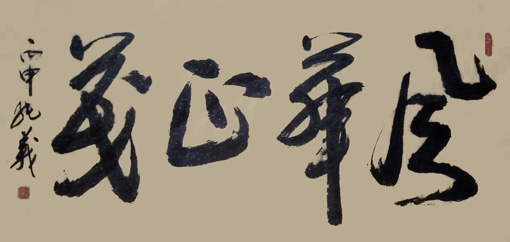 風華正茂
丙申純義